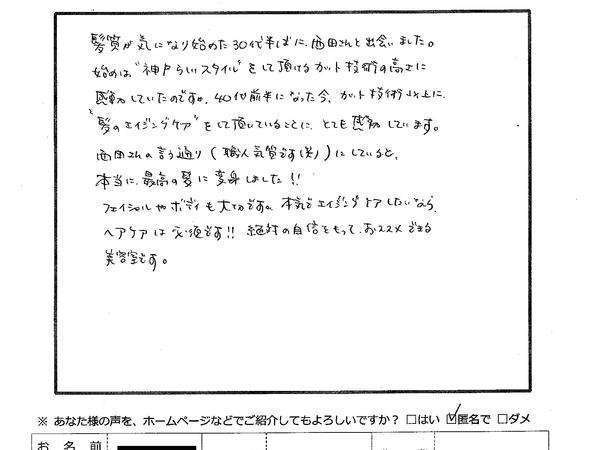 髪質が気になり始めた30代半ばに、西田さんと出会いました。
始めは"神戸らしいスタイル"をして頂けるカット技術の高さに
感動していたのですが、40代前半になった今、カット技術以上に、
"髪のエイジングケア"をして頂いていることに、とても感動しています。
西田さんの言う通り(職人気質です(笑))にしていると、
本当に、最高の髪に変身しました!!
フェイシャルやボディも大切ですが、本気でエイジングケアしたいなら、
ヘアケアは必須です!! 絶対の自信をもって、おススメできる
美容室です。
※ あなた様の声を、ホームページなどでご紹介してもよろしいですか? □はい ☑匿名で □ダメ
お 名 前